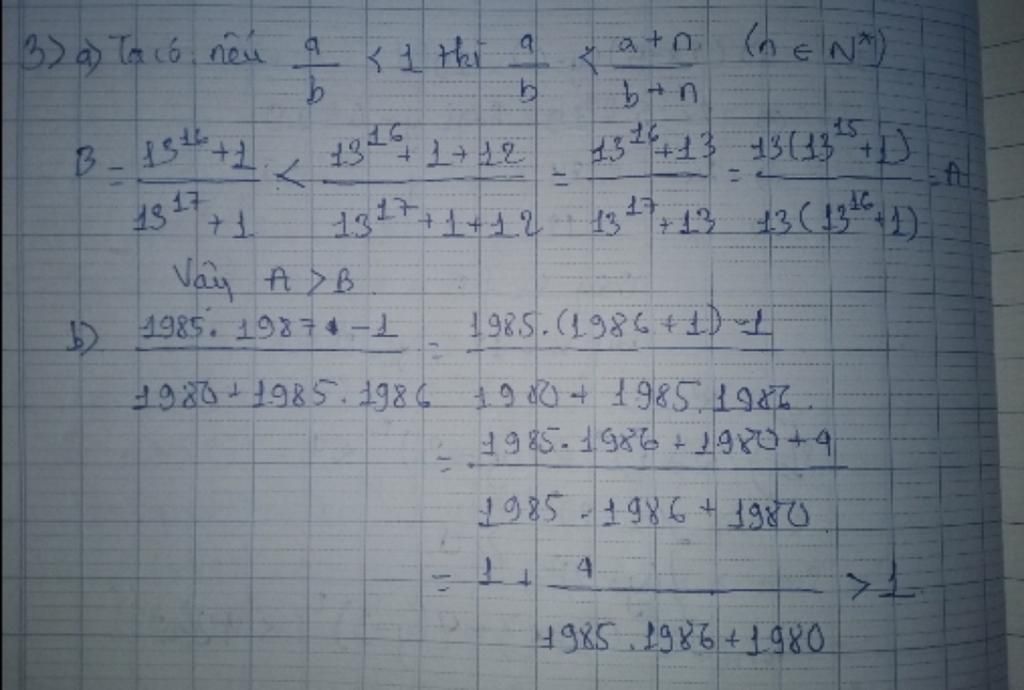 3) a) Ta có nếu a/b < 1 thì a/b < (a+n)/(b+n) (n ∈ N*)
B = (13^16+1)/(13^17+1) < (13^16+1+12)/(13^17+1+12) = (13^16+13)/(13^17+13) = 13(13^15+1)/13(13^16+1) = A
Vậy A > B
b) (1985.1987-1)/(1980+1985.1986) = (1985.(1986+1)-1)/(1980+1985.1986.)
= (1985.1986+1980+4)/(1985.1986+1980)
= 1 + 4/(1985.1986+1980) > 1